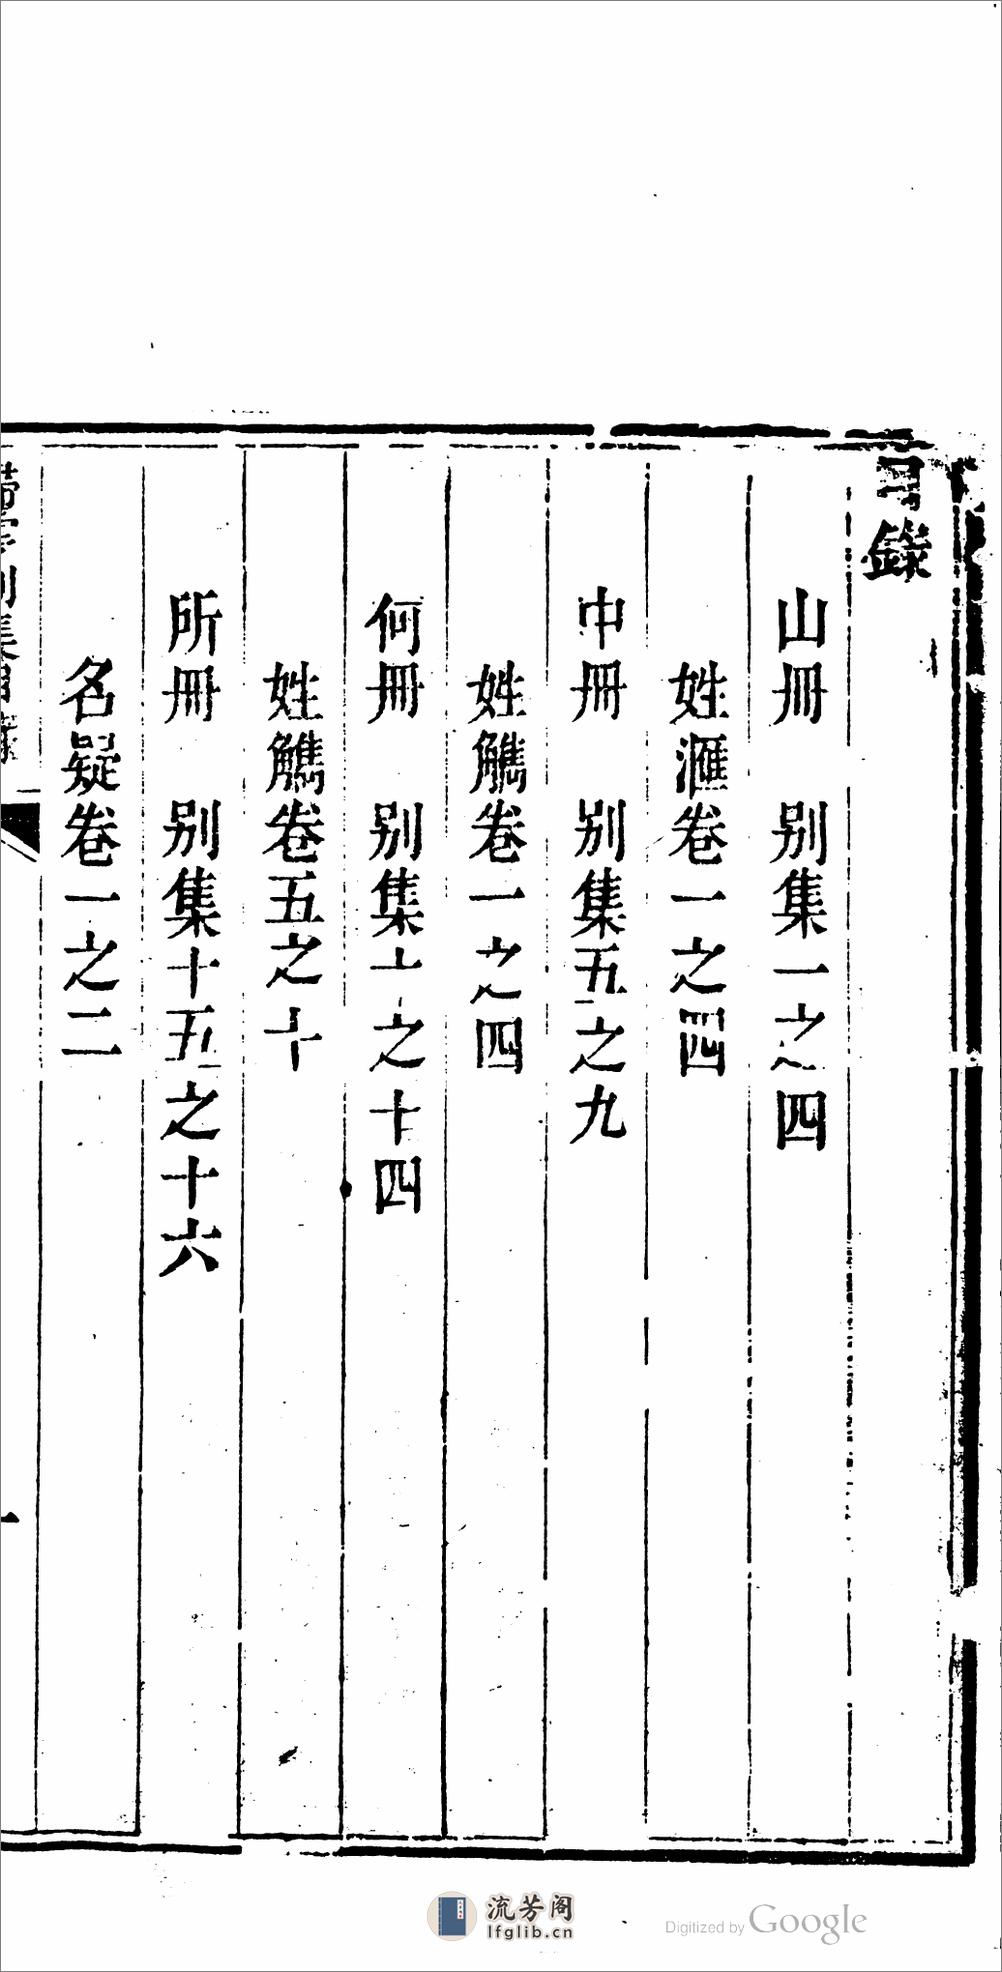 目錄
山冊 别集一之四
姓滙卷一之四
中冊 别集五之九
姓觿卷一之四
何冊 别集十之十四
姓觿卷五之十
所冊 别集十五之十六
名疑卷一之二
流芳阁
lfglib.cn
Digitized by Google